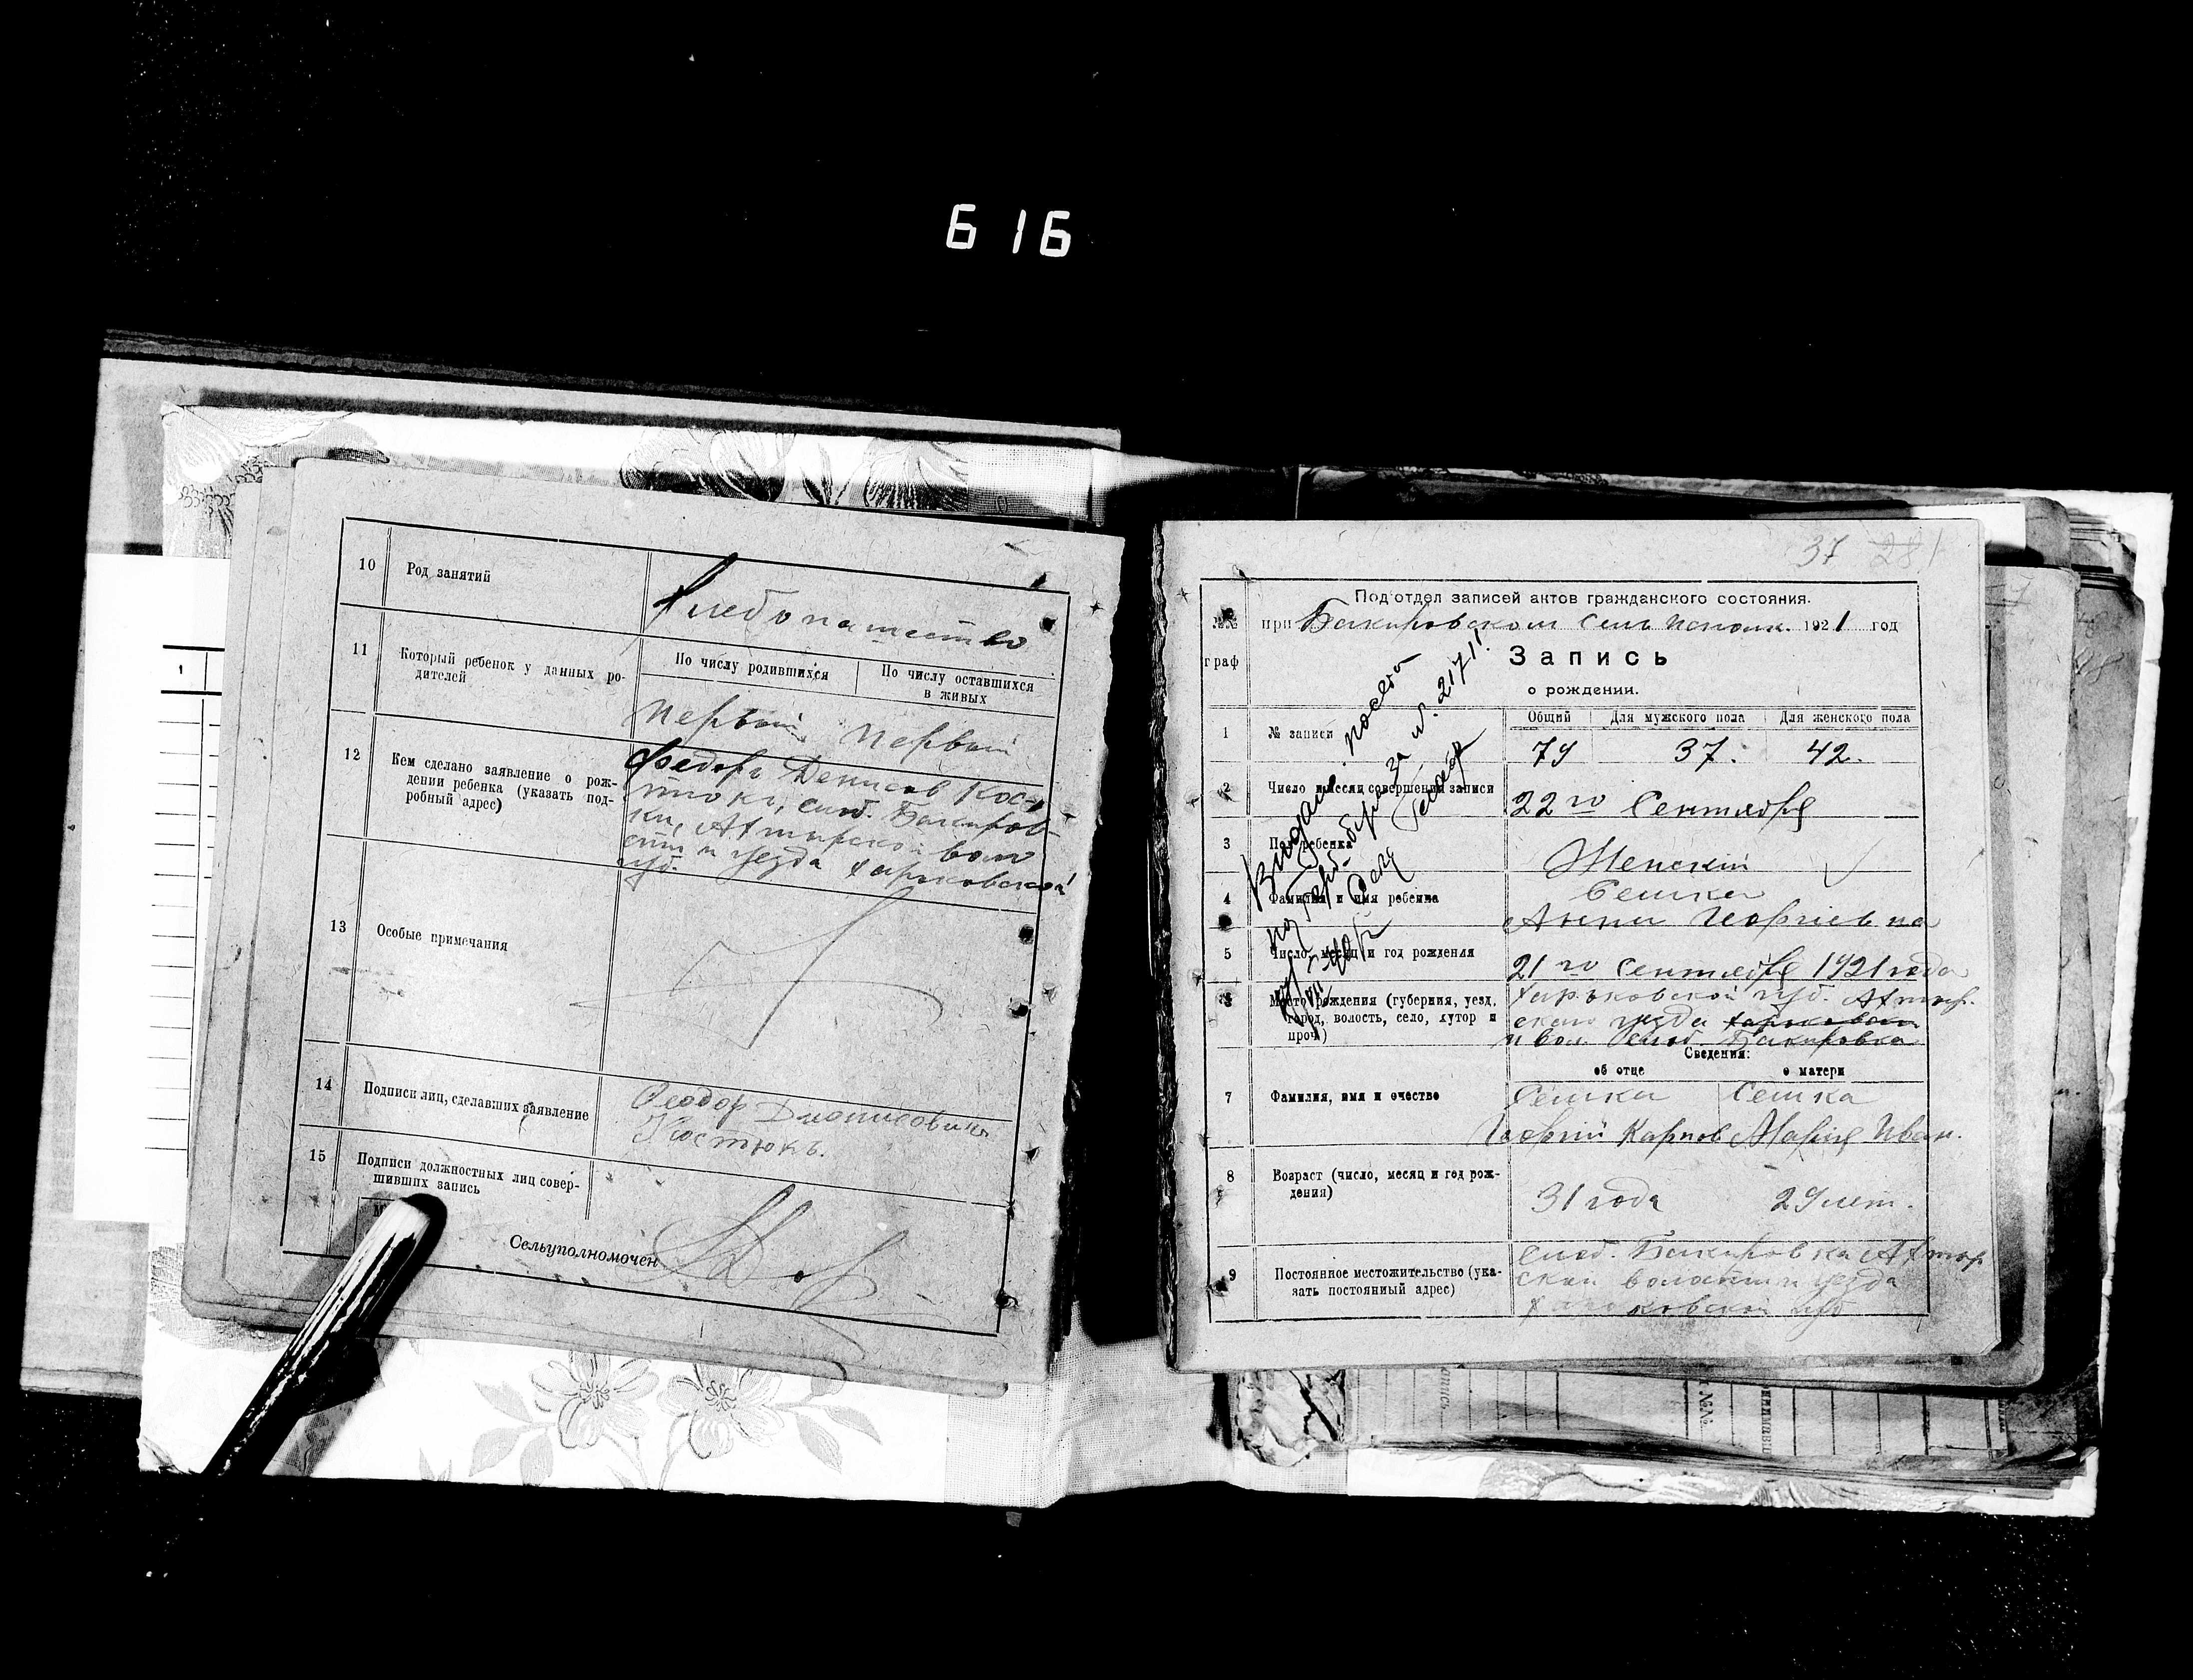 616
10 Род занятий
Хлебопашество
11 Который ребенок у данных ро-
дителей
По числу родившихся
По числу оставшихся
в живых
Первый Первый
12 Кем сделано заявление о рож-
дении ребенка (указать под-
робный адрес)
Федоръ Денисов Кос-
тюкъ, слоб. Бакиров-
ки, Ахтырской воло
сти и уезда Харьковской
губ.
13 Особые примечания
14 Подписи лиц, сделавших заявление
Феодор Дионисовичъ
Костюкъ.
15 Подписи должностных лиц совер-
шивших запись
Сельуполномочен
1
37 281
Под'отдел записей актов гражданского состояния.
№№
граф
при Бакировском Сель исполк. 1921 год
Запись
о рождении.
1 № записи
Общий Для мужского пола Для женского пола
79 37. 42.
2 Число и месяц совершения записи
22го Сентября
3 Пол ребенка
Женский
4 Фамилия и имя ребенка
Сешка
Анна Георгиевна
5 Число, месяц и год рождения
21го Сентября 1921 года
6 Место рождения (губерния, уезд,
город, волость, село, хутор и
проч.)
Харьковской губ. Ахтыр.
скаго уезда Харьковски
и вол. Слоб. Бакировка
Сведения:
об отце о матери
7 Фамилия, имя и очество
Сешка Сешка
Георгий Карпов Мария Иван.
8 Возраст (число, месяц и год рож-
дения)
31 года 29 лет.
9 Постоянное местожительство (ука-
зать постоянный адрес)
слоб. Бакировка Ахтыр
ской волости и уезда
Харьковской губ
за №. 2171.